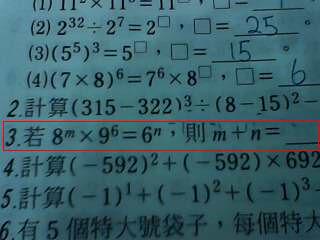 (1) 11² × 11⁹ = 11□ , □ =
(2) 2³² ÷ 2⁷ = 2□ , □ = 25 。
(3) (5⁵)³ = 5□ , □ = 15 。
(4) (7×8)⁶ = 7⁶ × 8□ , □ = 6
2.計算(315−322)³÷(8−15)²−
3.若 8ᵐ × 9⁶ = 6ⁿ , 則 m+n=
4.計算(−592)²+(−592)×692
5.計算(−1)¹+(−1)²+(−1)³
6.有 5 個特大號袋子, 每個特大